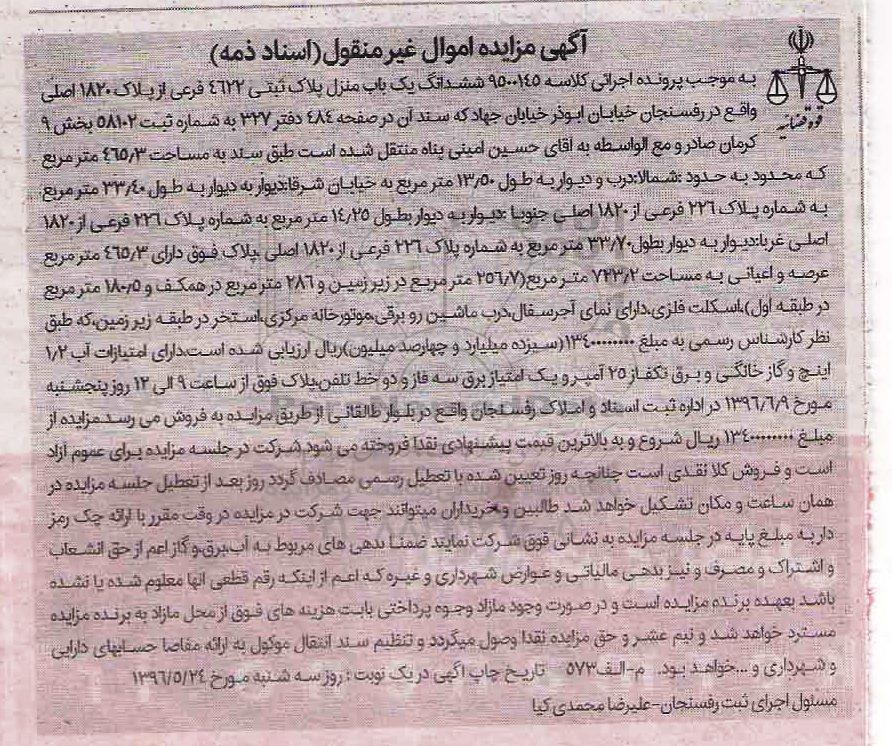 آگهی مزایده اموال غیر منقول(اسناد ذمه)
قوه قضائیه
به موجب پرونده اجرائی کلاسه ۹۵۰۰۱۴۵ ششدانگ یک باب منزل پلاک ثبتی ٤٦٢٢ فرعی از پلاک ۱۸۲۰ اصلی
واقع در رفسنجان خیابان ابوذر خیابان جهاد که سند آن در صفحه ٤٨٤ دفتر ۳۲۷ به شماره ثبت ۵۸۱۰۲ بخش ۹
کرمان صادر و مع الواسطه به اقای حسین امینی پناه منتقل شده است طبق سند به مساحت ٤٦٥/٣ متر مربع
که محدود به حدود :شمالا:درب و دیوار به طول ۱۳/۵۰ متر مربع به خیابان شرقا:دیوار به دیوار به طول ۳۳/٤۰ متر مربع
به شماره پلاک ۲۲٦ فرعی از ۱۸۲۰ اصلی جنوبا :دیوار به دیوار بطول ۱٤/۲۵ متر مربع به شماره پلاک ۲۲٦ فرعی از ۱۸۲۰
اصلی غربا:دیوار به دیوار بطول ۳۳/۷۰ متر مربع به شماره پلاک ۲۲٦ فرعی از ۱۸۲۰ اصلی ،پلاک فوق دارای ٤٦٥/٣ متر مربع
عرصه و اعیانی به مساحت ۷۲۳/۲ متر مربع(۲۵٦/۷ متر مربع در زیر زمین و ۲۸٦ متر مربع در همکف و ۱۸۰/۵ متر مربع
در طبقه اول)،اسکلت فلزی،دارای نمای آجرسفال،درب ماشین رو برقی،موتورخانه مرکزی،استخر در طبقه زیر زمین،که طبق
نظر کارشناس رسمی به مبلغ ۱۳٤۰۰۰۰۰۰۰۰(سیزده میلیارد و چهارصد میلیون)ریال ارزیابی شده است،دارای امتیازات آب ۱/۲
اینچ و گاز خانگی و برق تکفاز ۲۵ آمپر و یک امتیاز برق سه فاز و دو خط تلفن،پلاک فوق از ساعت ۹ الی ۱۲ روز پنجشنبه
مورخ ۱۳۹٦/٦/۹ در اداره ثبت اسناد و املاک رفسنجان واقع در بلوار طالقانی از طریق مزایده به فروش می رسد.مزایده از
مبلغ ۱۳٤۰۰۰۰۰۰۰۰ ریال شروع و به بالاترین قیمت پیشنهادی نقدا فروخته می شود.شرکت در جلسه مزایده برای عموم آزاد
است و فروش کلا نقدی است چنانچه روز تعیین شده با تعطیل رسمی مصادف گردد روز بعد از تعطیل جلسه مزایده در
همان ساعت و مکان تشکیل خواهد شد طالبین و خریداران میتوانند جهت شرکت در مزایده در وقت مقرر با ارائه چک رمز
دار به مبلغ پایه در جلسه مزایده به نشانی فوق شرکت نمایند ضمنا بدهی های مربوط به آب،برق،و گاز اعم از حق انشعاب
و اشتراک و مصرف و نیز بدهی مالیاتی و عوارض شهرداری و غیره که اعم از اینکه رقم قطعی انها معلوم شده یا نشده
باشد بعهده برنده مزایده است و در صورت وجود مازاد وجوه پرداختی بابت هزینه های فوق از محل مازاد به برنده مزایده
مسترد خواهد شد و نیم عشر و حق مزایده نقدا وصول میگردد و تنظیم سند انتقال موکول به ارائه مفاصا حسابهای دارایی
و شهرداری و ...خواهد بود. م-الف ۵۷۳ تاریخ چاپ اگهی در یک نوبت : روز سه شنبه مورخ ۱۳۹٦/۵/۲٤
مسئول اجرای ثبت رفسنجان-علیرضا محمدی کیا